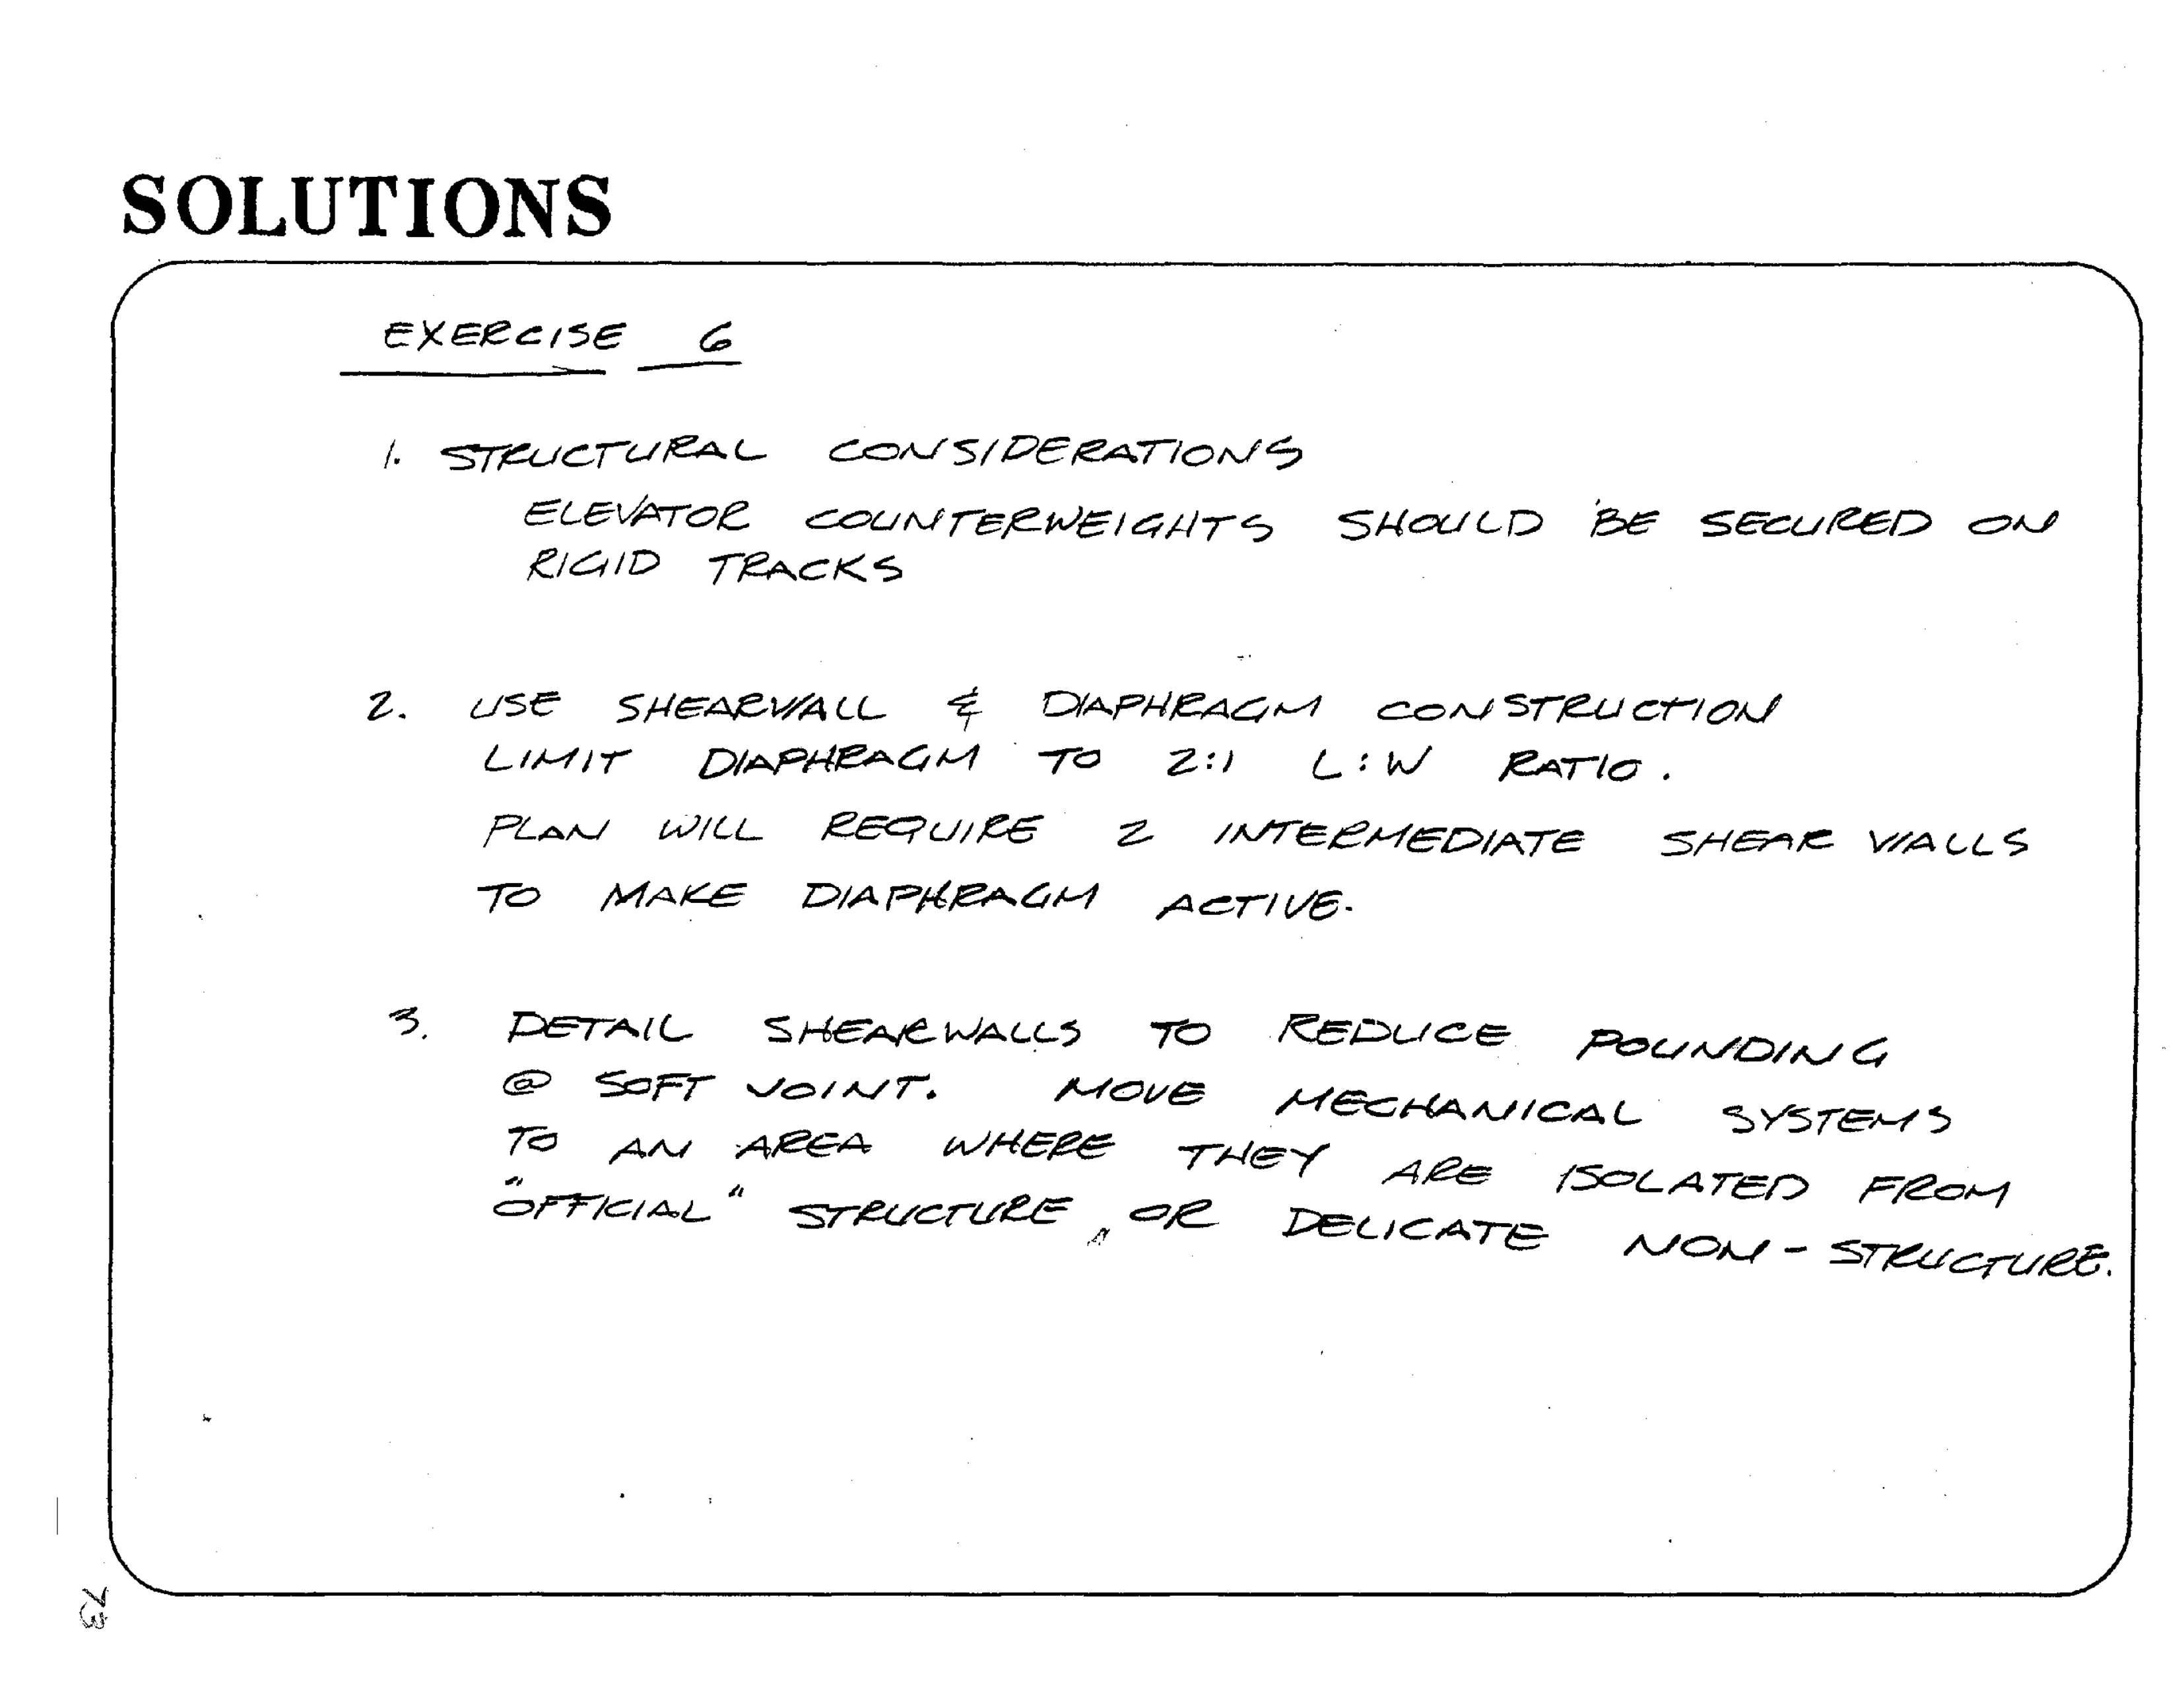 SOLUTIONS
EXERCISE 6
1. STRUCTURAL CONSIDERATIONS
ELEVATOR COUNTERWEIGHTS SHOULD BE SECURED ON
RIGID TRACKS
2. USE SHEARWALL & DIAPHRAGM CONSTRUCTION
LIMIT DIAPHRAGM TO 2:1 L:W RATIO.
PLAN WILL REQUIRE 2 INTERMEDIATE SHEAR WALLS
TO MAKE DIAPHRAGM ACTIVE.
3. DETAIL SHEARWALLS TO REDUCE POUNDING
@ SOFT JOINT. MOVE MECHANICAL SYSTEMS
TO AN AREA WHERE THEY ARE ISOLATED FROM
"OFFICIAL" STRUCTURE, OR DELICATE NON-STRUCTURE.
73